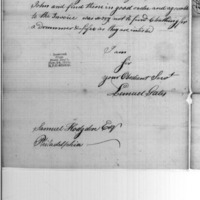 Stores and find them in good order and agreeable
to the Invoice was sorry not to find Cloathing for
a Drummer & fifer as they are in
I am
Sir
your Obedient Servt
Lemuel Gates
Samuel Hodgdon Esqr
Philadelphia